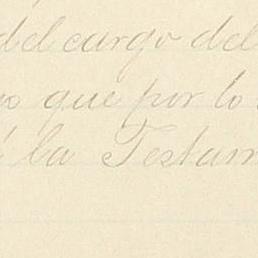 del cargo del
que por lo
la Testam